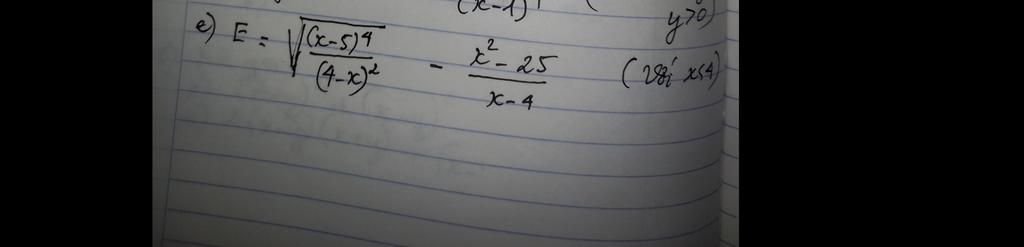 (x-1)
y>0)
e) E = √((x-5)⁴/(4-x)²) - (x² - 25)/(x-4) (với x<4)